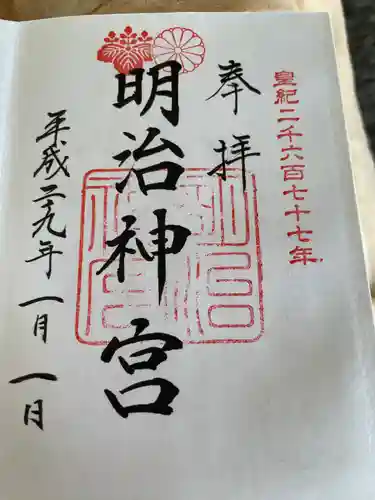 皇紀二千六百七十七年
奉拝
明治神宮
明治神宮
平成二十九年一月一日